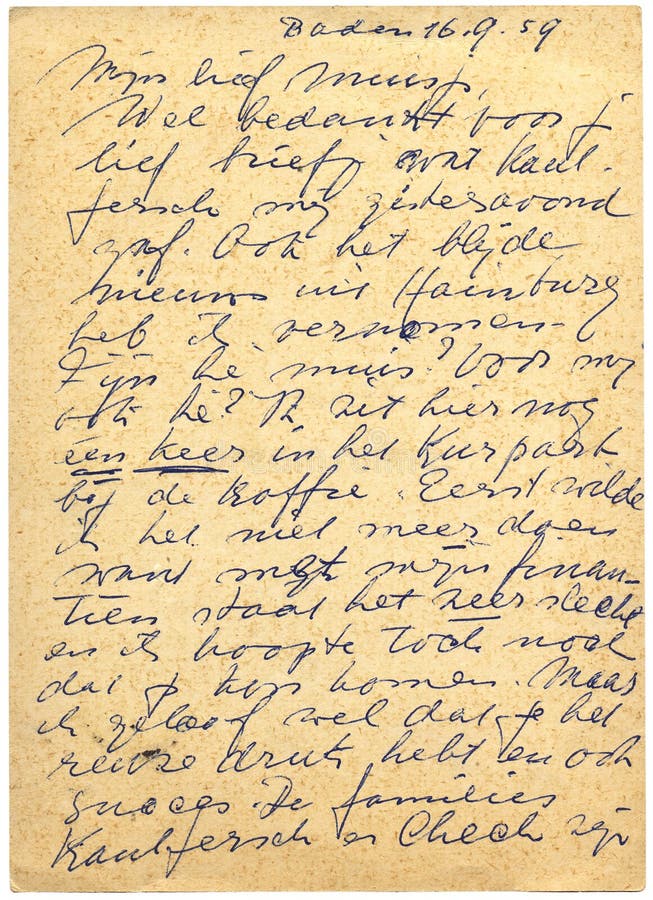 Baden 16.9.59
Mijn lief muisj,
Wel bedankt voor j
lief briefj wat Kaul-
fersch mij gisteravond
gaf. Ook het blijde
nieuws uit Hainburg
heb ik vernomen
Fijn hè muis? Voor mij
ook hè? Ik zit hier nog
één keer in het Kurpark
bij de koffie. Eerst wilde
ik het niet meer doen
want met mijn finan-
tiën staat het zeer slecht
en ik hoopte toch nog
dat je kon komen. Maar
ik geloof wel dat je het
reuze druk hebt en ook
succes. De families
Kaulfersch en Chech zijn